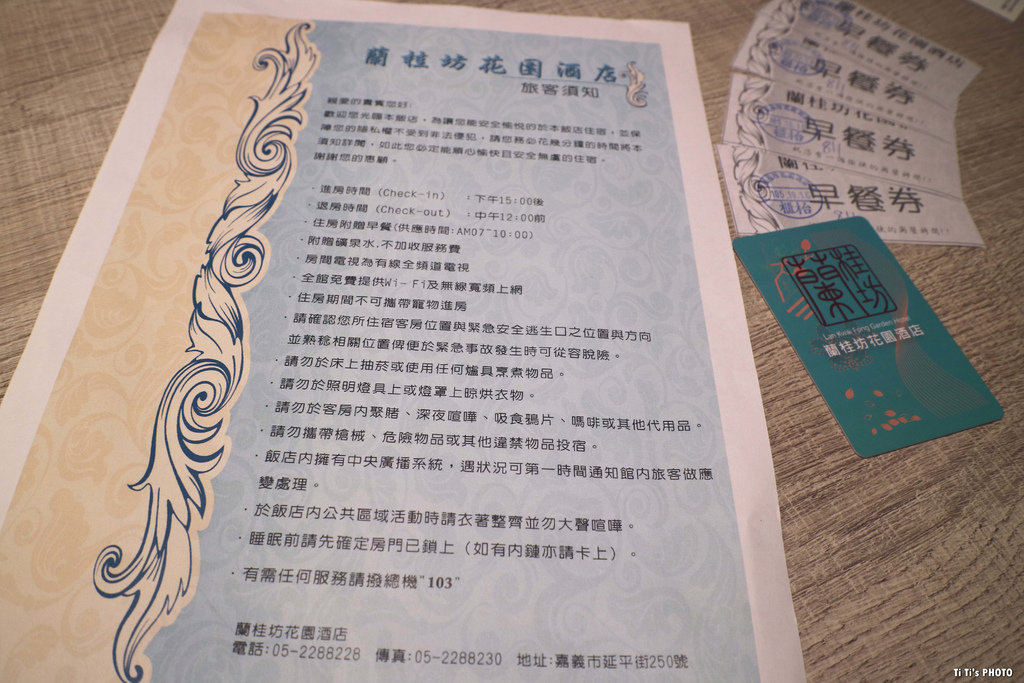 蘭桂坊花园酒店
旅客須知
親愛的貴賓您好:
歡迎您光臨本飯店，為讓您能安全愉悅的於本飯店住宿，並保
障您的隱私權不受到非法侵犯，請您務必花幾分鐘的時間將本
須知詳閱，如此您必定能順心愉快且安全無虞的住宿。
謝謝您的惠顧。
·進房時間 (Check-in) :下午15:00後
·退房時間 (Check-out) :中午12:00前
·住房附贈早餐(供應時間:AM07~10:00)
·附贈礦泉水.不加收服務費
·房間電視為有線全頻道電視
·全館免費提供Wi-Fi及無線寬頻上網
·住房期間不可攜帶寵物進房
·請確認您所住宿客房位置與緊急安全逃生口之位置與方向
並熟稔相關位置俾便於緊急事故發生時可從容脫險。
·請勿於床上抽菸或使用任何爐具烹煮物品。
·請勿於照明燈具上或燈罩上晾烘衣物。
·請勿於客房內聚賭、深夜喧嘩、吸食鴉片、嗎啡或其他代用品。
·請勿攜帶槍械、危險物品或其他違禁物品投宿。
·飯店內擁有中央廣播系統，遇狀況可第一時間通知館內旅客做應
變處理。
·於飯店內公共區域活動時請衣著整齊並勿大聲喧嘩。
·睡眠前請先確定房門已鎖上（如有內鏈亦請卡上）。
·有需任何服務請撥總機"103"
蘭桂坊花園酒店
電話:05-2288228 傳真:05-2288230 地址:嘉義市延平街250號
蘭桂坊花園酒店
早餐券
早餐券
蘭桂坊花
早餐券
811
蘭
早餐券
811
蘭桂坊
Lan Kwai Fong Garden Hotel
蘭桂坊花園酒店
Ti Ti's PHOTO